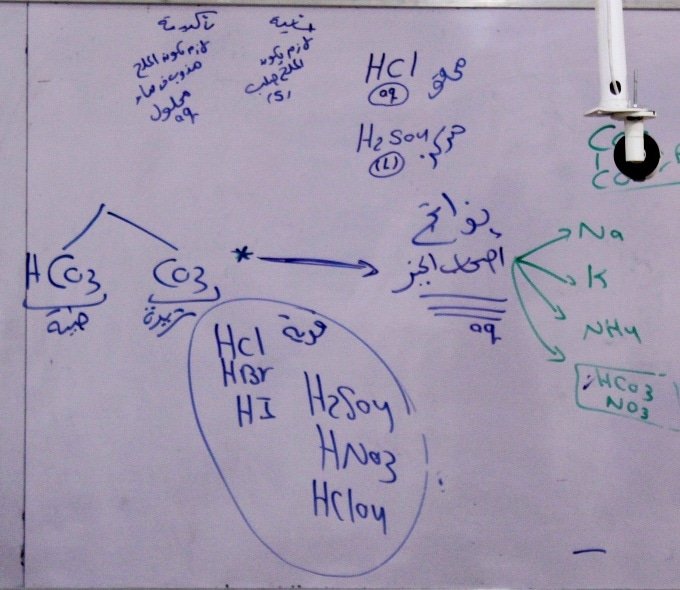 تأكيدية
لازم يكون الملح
مذوب في ماء
محلول
aq
لازم يكون
الملح صلب
(S)
HCl
(aq)
H2SO4
(L)
CO
CO
HCO3
CO3
*
نواتج
اصحاب الجنز
aq
Na
K
NH4
HCO3
NO3
قوية
HCl
HBr
HI
H2SO4
HNO3
HClO4